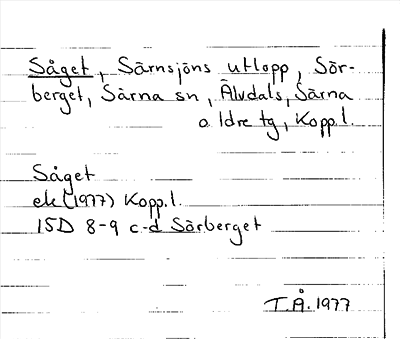 Såget, Särnsjöns utlopp, Sör-
berget, Särna sn, Älvdals, Särna
o Idre tg, Kopp.l.
Såget
ek (1977) Kopp.l.
15D 8-9 c-d Sörberget
T.Å. 1977